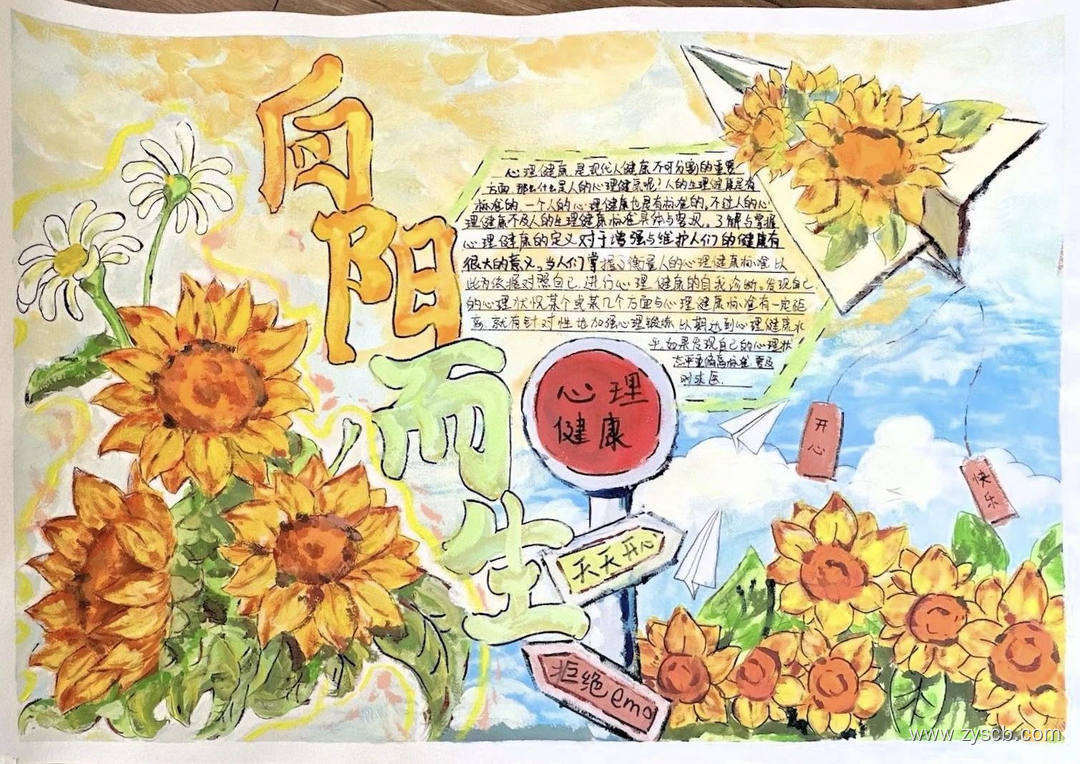 向阳而生
心理健康是现代人健康不可分割的重要
方面,那么什么是人的心理健康呢?人的生理健康是有
标准的,一个人的心理健康也是有标准的,不过人的心
理健康不及人的生理健康标准具体与客观。了解与掌握
心理健康的定义对于增强与维护人们的健康有
很大的意义。当人们掌握了衡量人的心理健康标准,以
此为依据对照自己,进行心理健康的自我诊断。发现自己
的心理状况某个或某几个方面与心理健康标准有一定距
离,就有针对性地加强心理锻炼,以期达到心理健康水
平。如果发现自己的心理状
态严重偏离标准,要及
时求医.
心理
健康
开心
快乐
天天开心
拒绝emo
www.zyscb.com